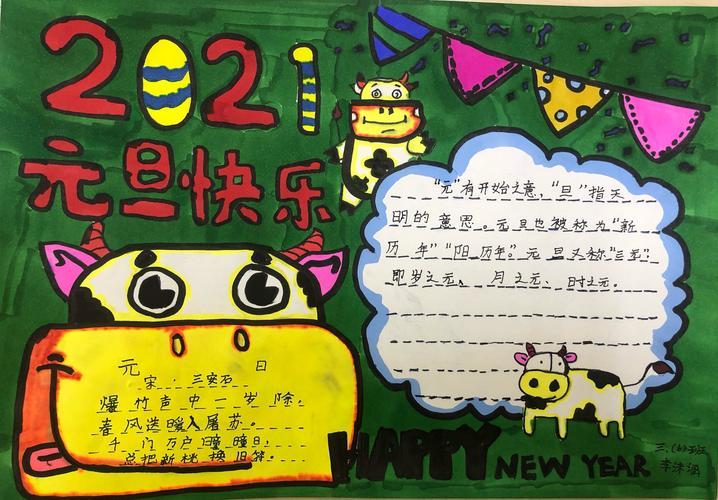 2021
元旦快乐
"元"有开始之意,"旦"指天
明的意思。元旦也被称为"新
历年""阳历年"。元旦又称"三元".
即岁之元、月之元、时之元。
元日
宋·王安石
爆竹声中一岁除,
春风送暖入屠苏。
千门万户曈曈日,
总把新桃换旧符。
HAPPY NEW YEAR